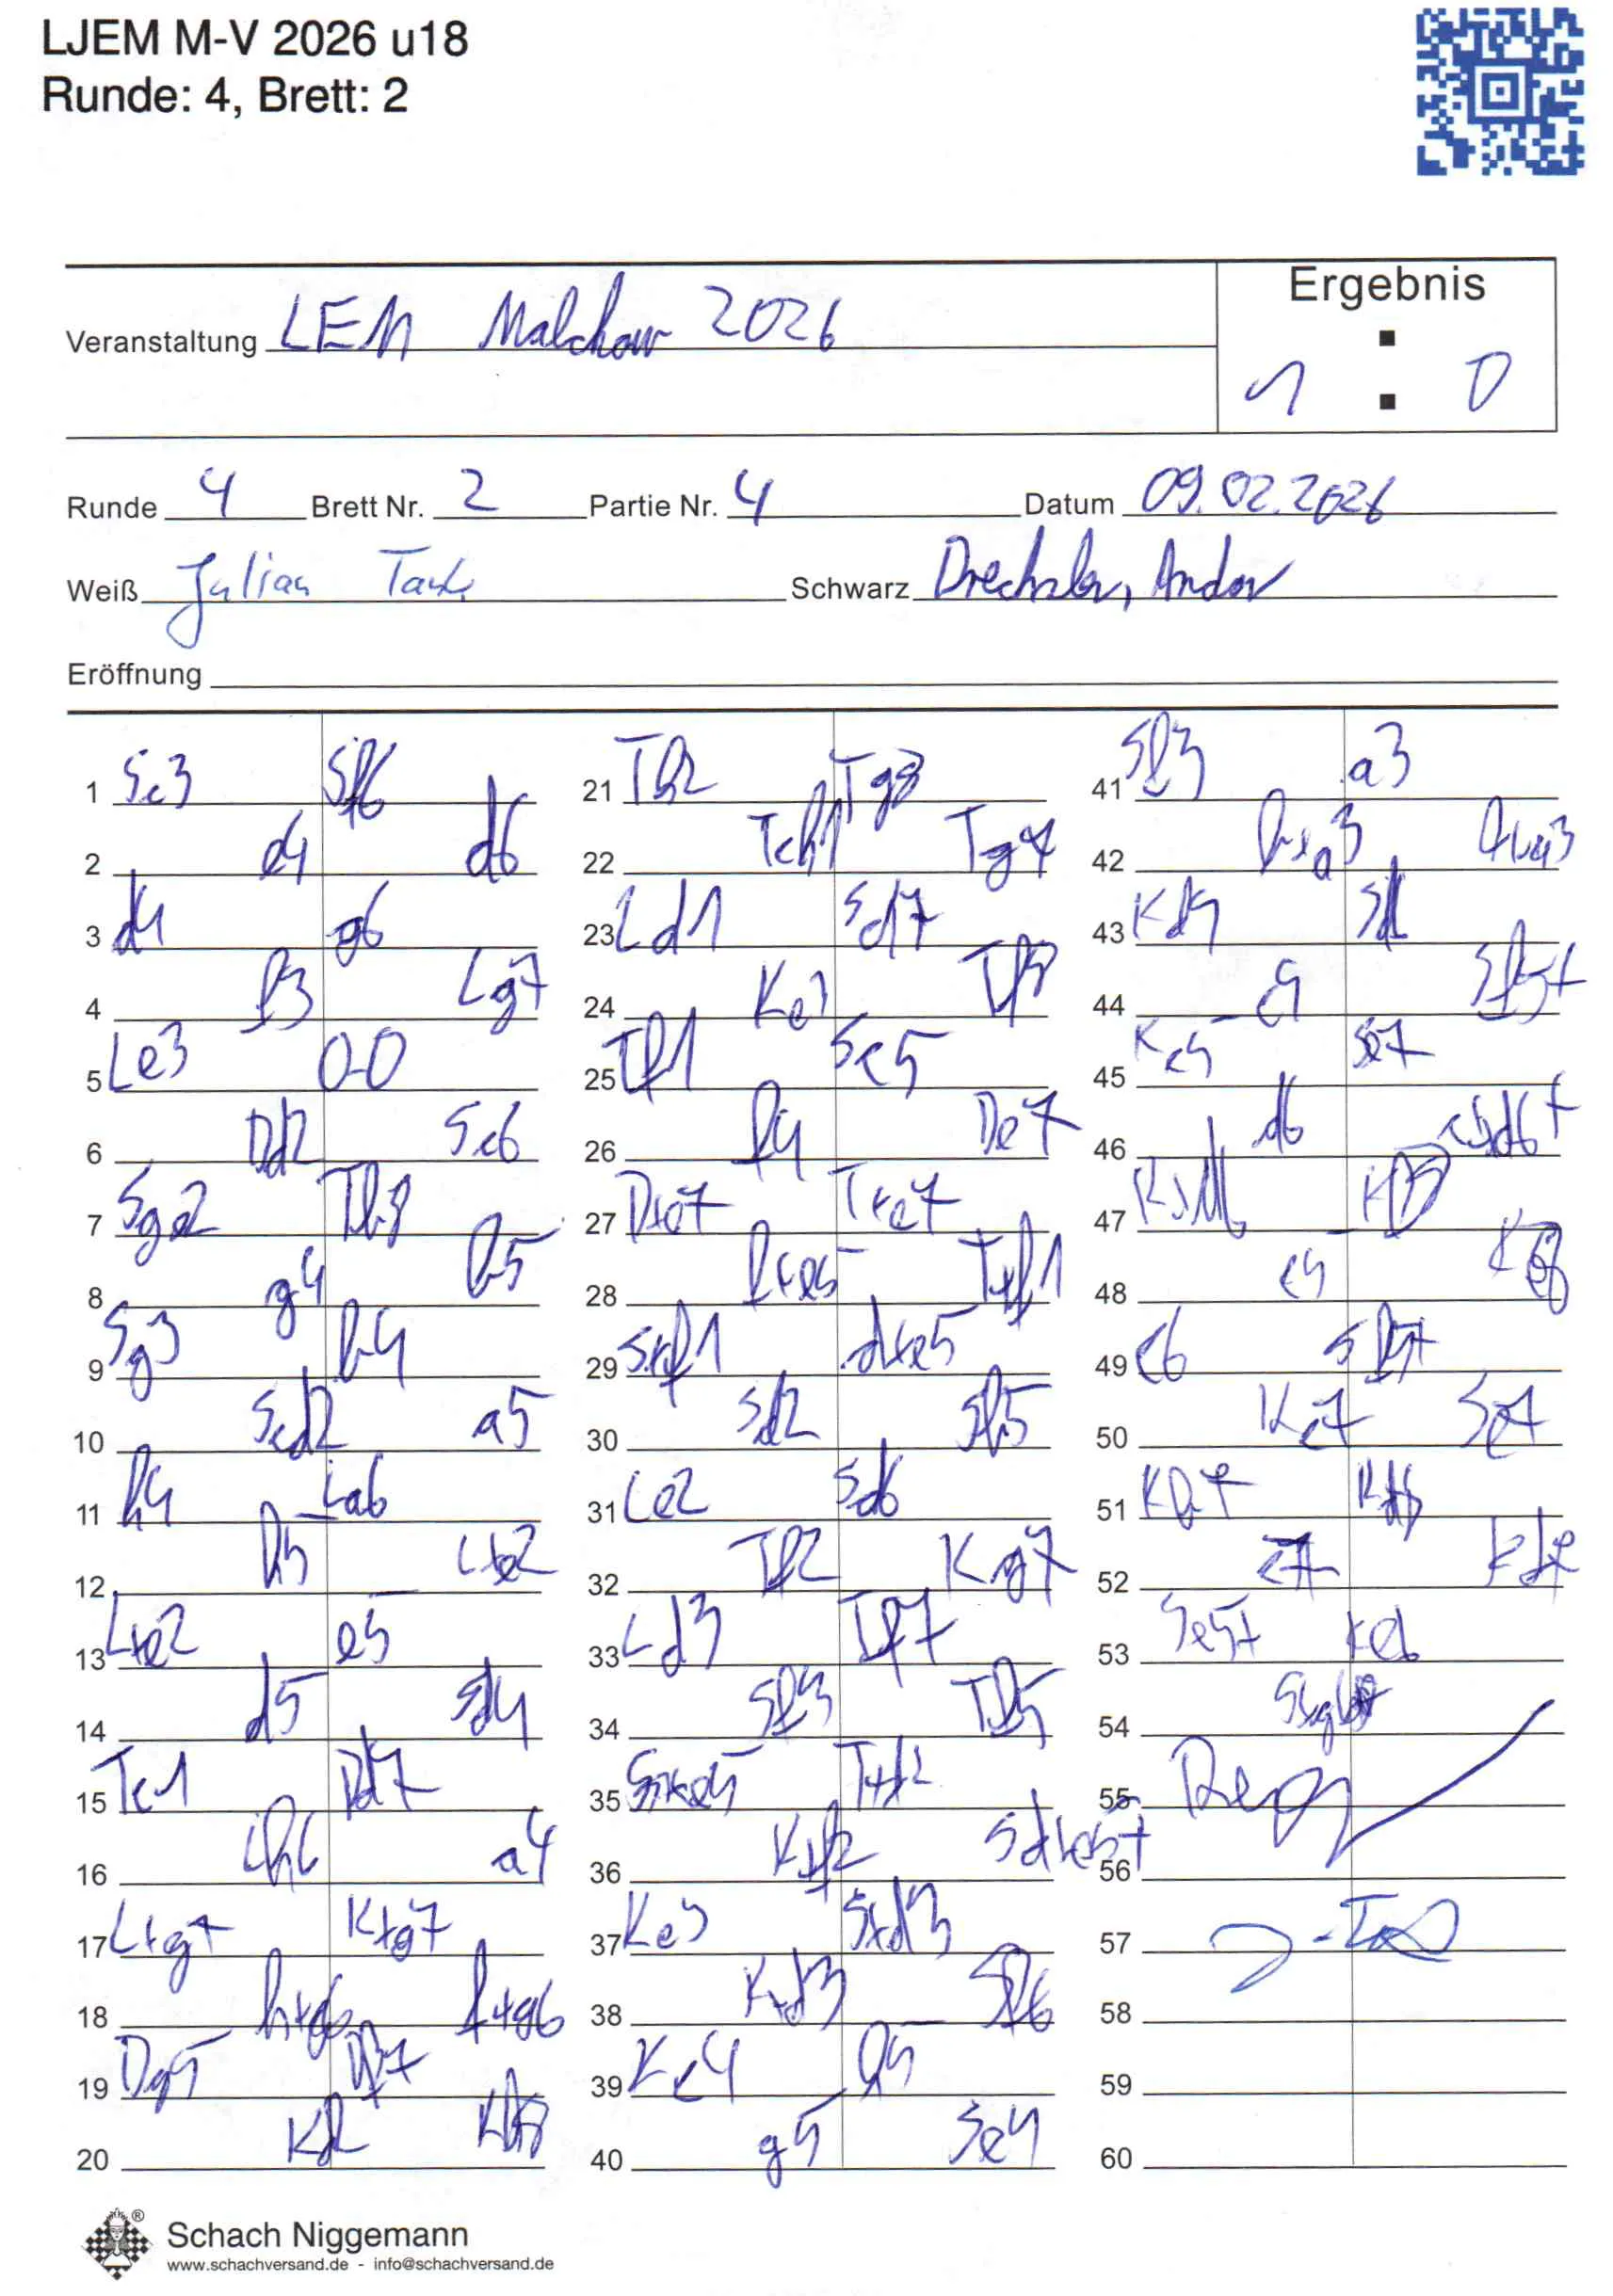 LJEM M-V 2026 u18
Runde: 4, Brett: 2
Ergebnis
Veranstaltung LEM Malchow 2026
1 : 0
Runde 4 Brett Nr. 2 Partie Nr. 4 Datum 09.02.2026
Weiß Julian Schwarz Drechsler, Andor
Eröffnung
1 Sc3 Sf6 21 Th2 Tg8 41 Sf3 a3
2 e4 d6 22 Tch1 Tg7 42 bxa3 bxa3
3 d4 g6 23 Ld1 Sd7 43 Kd4
4 f3 Lg7 24 Ke1 Tf8 44 c4 Sf5+
5 Le3 0-0 25 Tf1 Sc5 45 Kc5 Se7
6 Dd2 Sc6 26 f4 De7 46 d6 cxd6+
7 Sge2 Tb8 27 Dxe7 Txe7 47 Kxd6
8 g4 b5 28 fxe5 Txf1 48 c5
9 Sg3 b4 29 Sxf1 dxe5 49 c6 Sf5+
10 Sce2 a5 30 Sd2 Sb7 50 Kc7 Se7
11 h4 La6 31 Le2 Sd6 51 Kb7
12 h5 Lxe2 32 Tf2 Kg7 52 c7
13 Lxe2 e5 33 Ld3 Tf7 53 Se5+ Ke6
14 d5 Sd4 34 Sf3 54 Sxg6
15 Tc1 Dd7 35 Sxe5 Txf2 55
16 Lh6 a4 36 Kxf2 Sdxe5+ 56
17 Lxg7 Kxg7 37 Ke3 Sxd3 57
18 hxg6 fxg6 38 Kxd3 Sf6 58
19 Dg5 Df7 39 Ke4 b5 59
20 Kf2 Kh8 40 g5 Se4 60
® Schach Niggemann
www.schachversand.de - info@schachversand.de